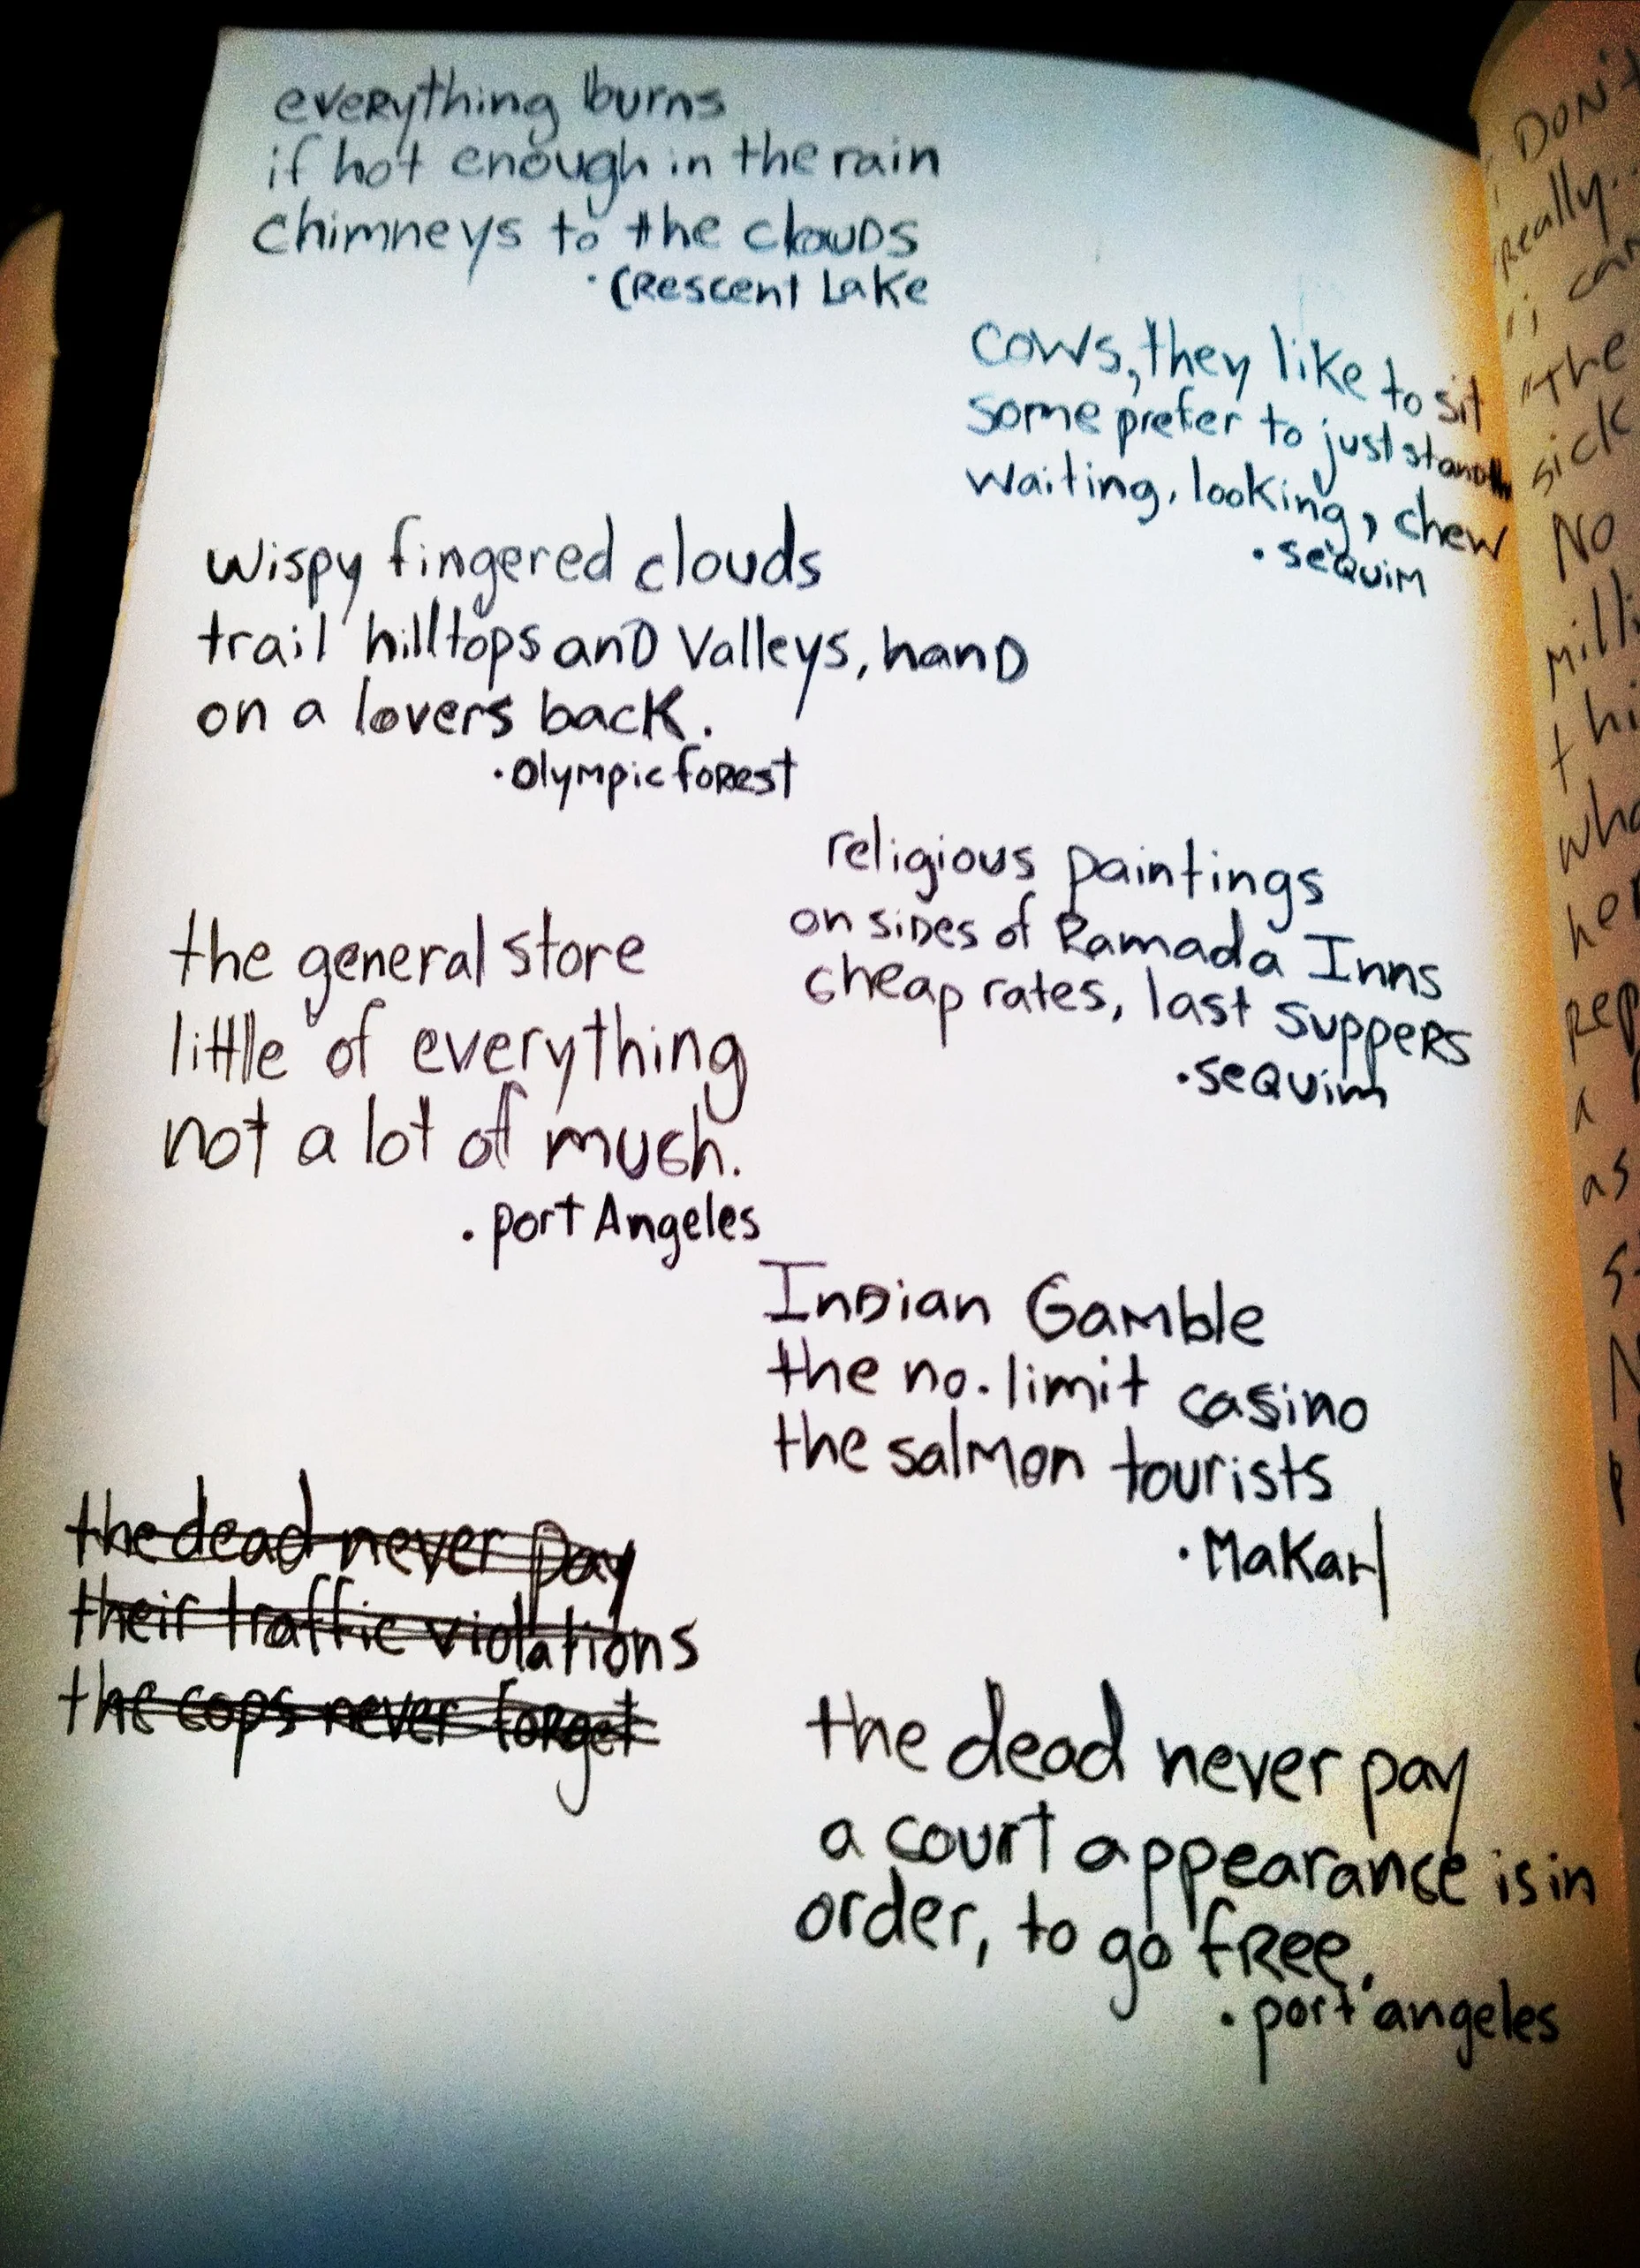 everything burns
if hot enough in the rain
chimneys to the clouds
· Crescent Lake
cows, they like to sit
some prefer to just stand
waiting, looking, chew
· sequim
wispy fingered clouds
trail hilltops and valleys, hand
on a lovers back.
· olympic forest
religious paintings
on sides of Ramada Inns
cheap rates, last suppers
· sequim
the general store
little of everything
not a lot of much.
· port Angeles
Indian Gamble
the no. limit casino
the salmon tourists
· Makah
the dead never pay
their traffic violations
the cops never forget
the dead never pay
a court appearance is in
order, to go free.
· port angeles
Don't
really..
"i can
"The
sick
No
milli
thi
wha
her
rep
a
as